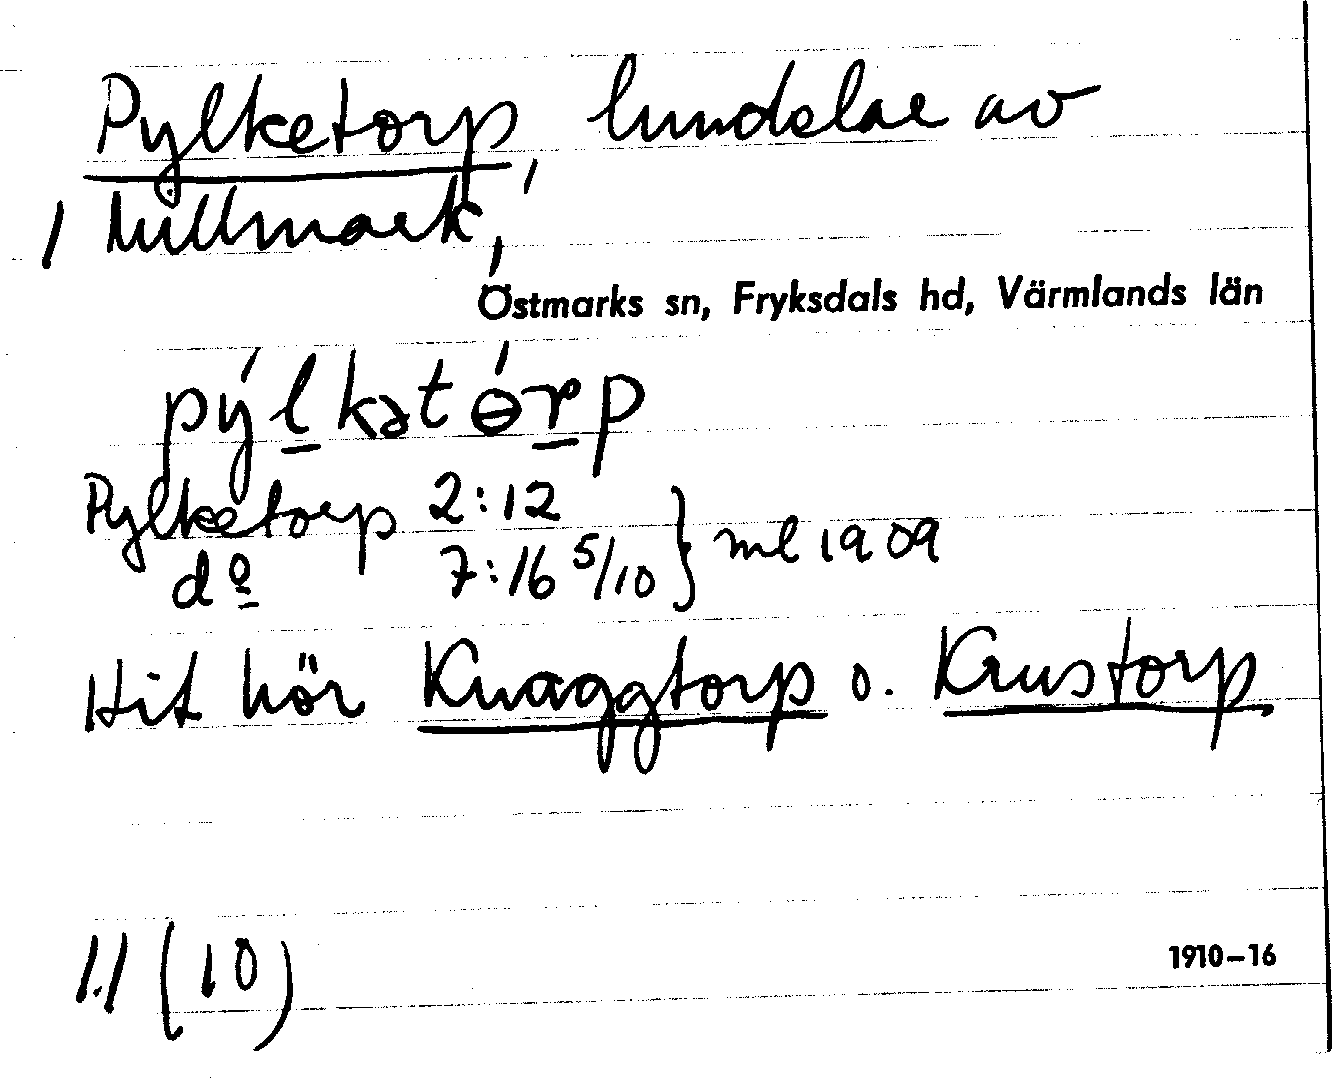 Pylketorp, lundelar av
/ Millmark,
Östmarks sn, Fryksdals hd, Värmlands län
pý̱lkətө́rp
Pylketorp 2:12
dº 7:16 5/10 } ml 1909
Hit hör Knaggtorp o. Krustorp
1.1 (10)
1910–16